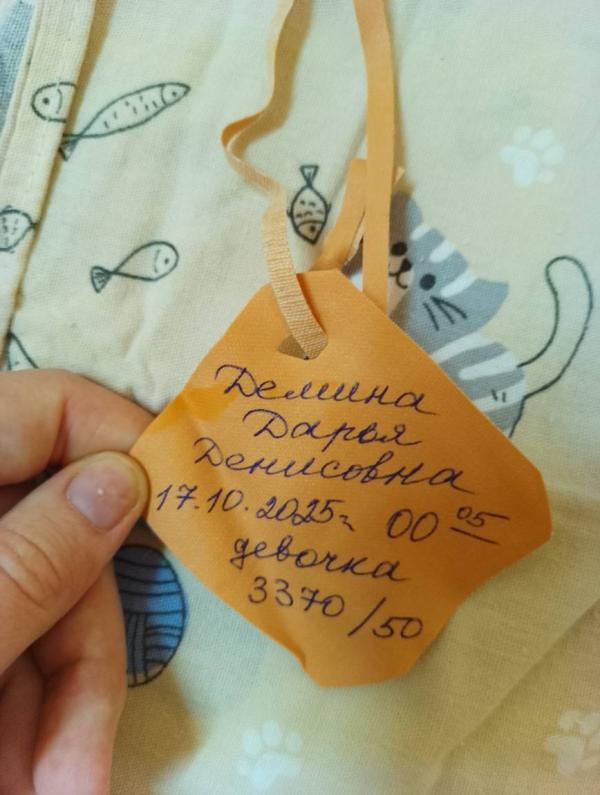 Демина
Дарья
Денисовна
17.10.2025г 00 05
девочка
3370/50